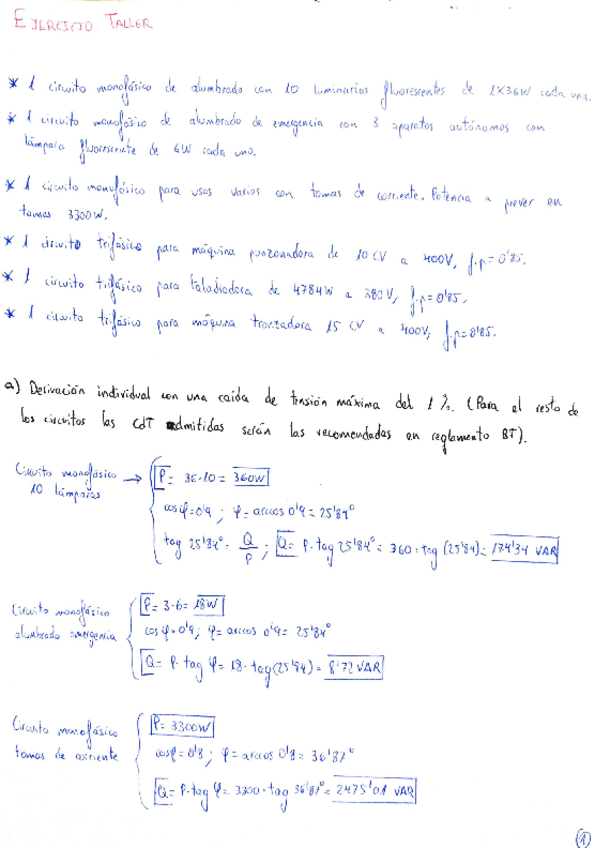 EJERCICIO TALLER
* 1 circuito monofásico de alumbrado con 10 luminarias fluorescentes de 1x36W cada una.
* 1 circuito monofásico de alumbrado de emergencia con 3 aparatos autónomos con
lámpara fluorescente de 6W cada uno.
* 1 circuito monofásico para usos varios con tomas de corriente. Potencia a prever en
tomas 3300W.
* 1 circuito trifásico para máquina punzonadora de 10 CV a 400V, f.p=0'85.
* 1 circuito trifásico para taladradora de 4784W a 380V, f.p=0'85.
* 1 circuito trifásico para máquina tronzadora 15 CV a 400V, f.p=0'85.
a) Derivación individual con una caída de tensión máxima del 1%. (Para el resto de
los circuitos las CdT admitidas serán las recomendadas en reglamento BT).
Circuito monofásico → P= 36·10 = 360W
10 lámparas
cosφ=0'9 ; φ= arccos 0'9= 25'84°
tag 25'84° = Q/P ; Q= P·tag 25'84° = 360·tag (25'84)= 174'34 VAR
Circuito monofásico
alumbrado emergencia
P= 3·6= 18W
cosφ=0'9; φ= arccos 0'9= 25'84°
Q= P·tag φ= 18·tag(25'84)= 8'72 VAR
Circuito monofásico
tomas de corriente
P= 3300W
cosφ=0'8 ; φ= arccos 0'8= 36'87°
Q= P·tag φ= 3300·tag 36'87°= 2475'01 VAR
1